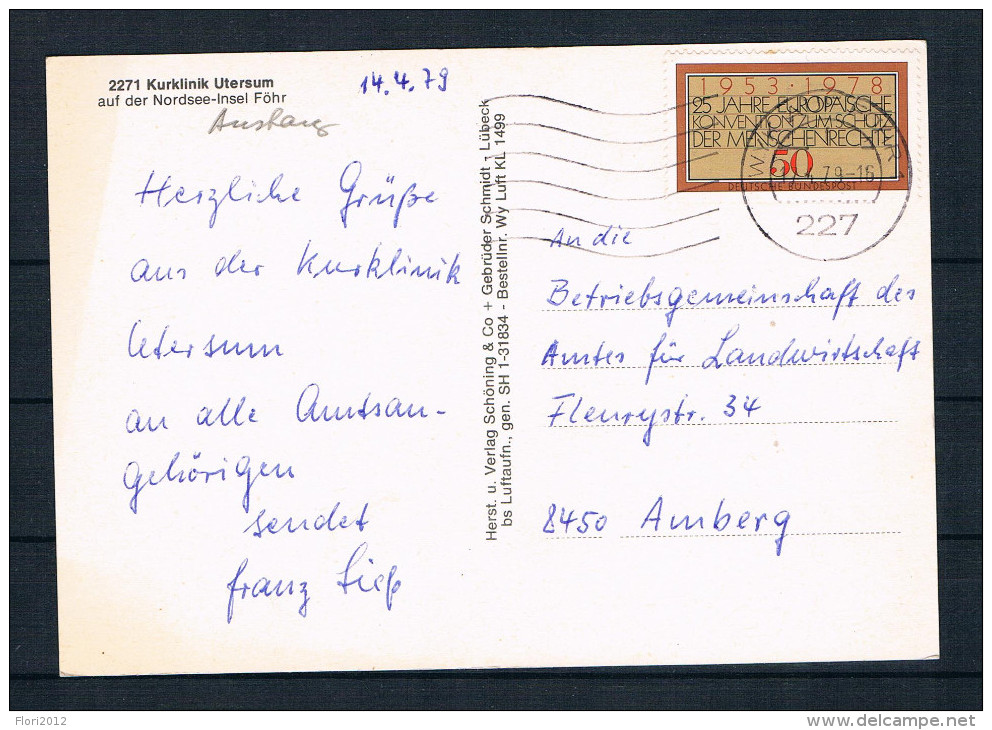 2271 Kurklinik Utersum
auf der Nordsee-Insel Föhr
14.4.79
Aushang
Herzliche Grüße
aus der Kurklinik
Utersum
an alle Amtsan-
gehörigen
sendet
Franz
Herst. u. Verlag Schöning & Co + Gebrüder Schmidt - Lübeck
bs Luftaufn., gen. SH 1-31834 - Bestellnr. Wy Luft KL 1499
1953 1978
25 JAHRE EUROPÄISCHE
KONVENTION ZUM SCHUTZ
DER MENSCHENRECHTE
50
DEUTSCHE BUNDESPOST
79-16
227
An die
Betriebsgemeinschaft des
Amtes für Landwirtschaft
Fleurystr. 34
8450 Amberg
Flori2012
www.delcampe.net